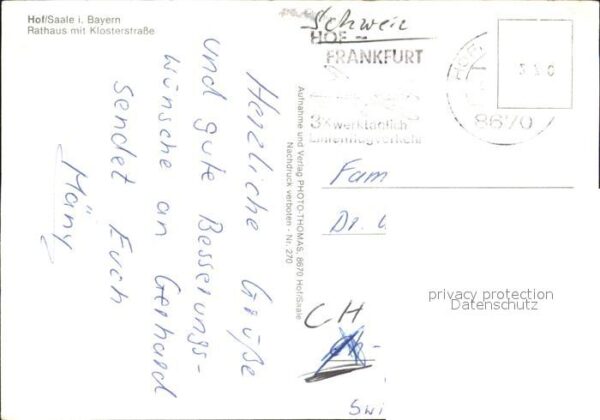 Hof/Saale i. Bayern
Rathaus mit Klosterstraße
Herzliche Grüße
und gute Besserungs-
wünsche an Gerhard
sendet Euch
Mäny
Aufnahme und Verlag PHOTO-THOMAS, 8670 Hof/Saale
Nachdruck verboten - Nr. 270
Schweiz
HOF –
FRANKFURT
3x werktäglich
Linienflugverkehr
HOF
8670
Fam
Dr.
CH
Swi
privacy protection
Datenschutz